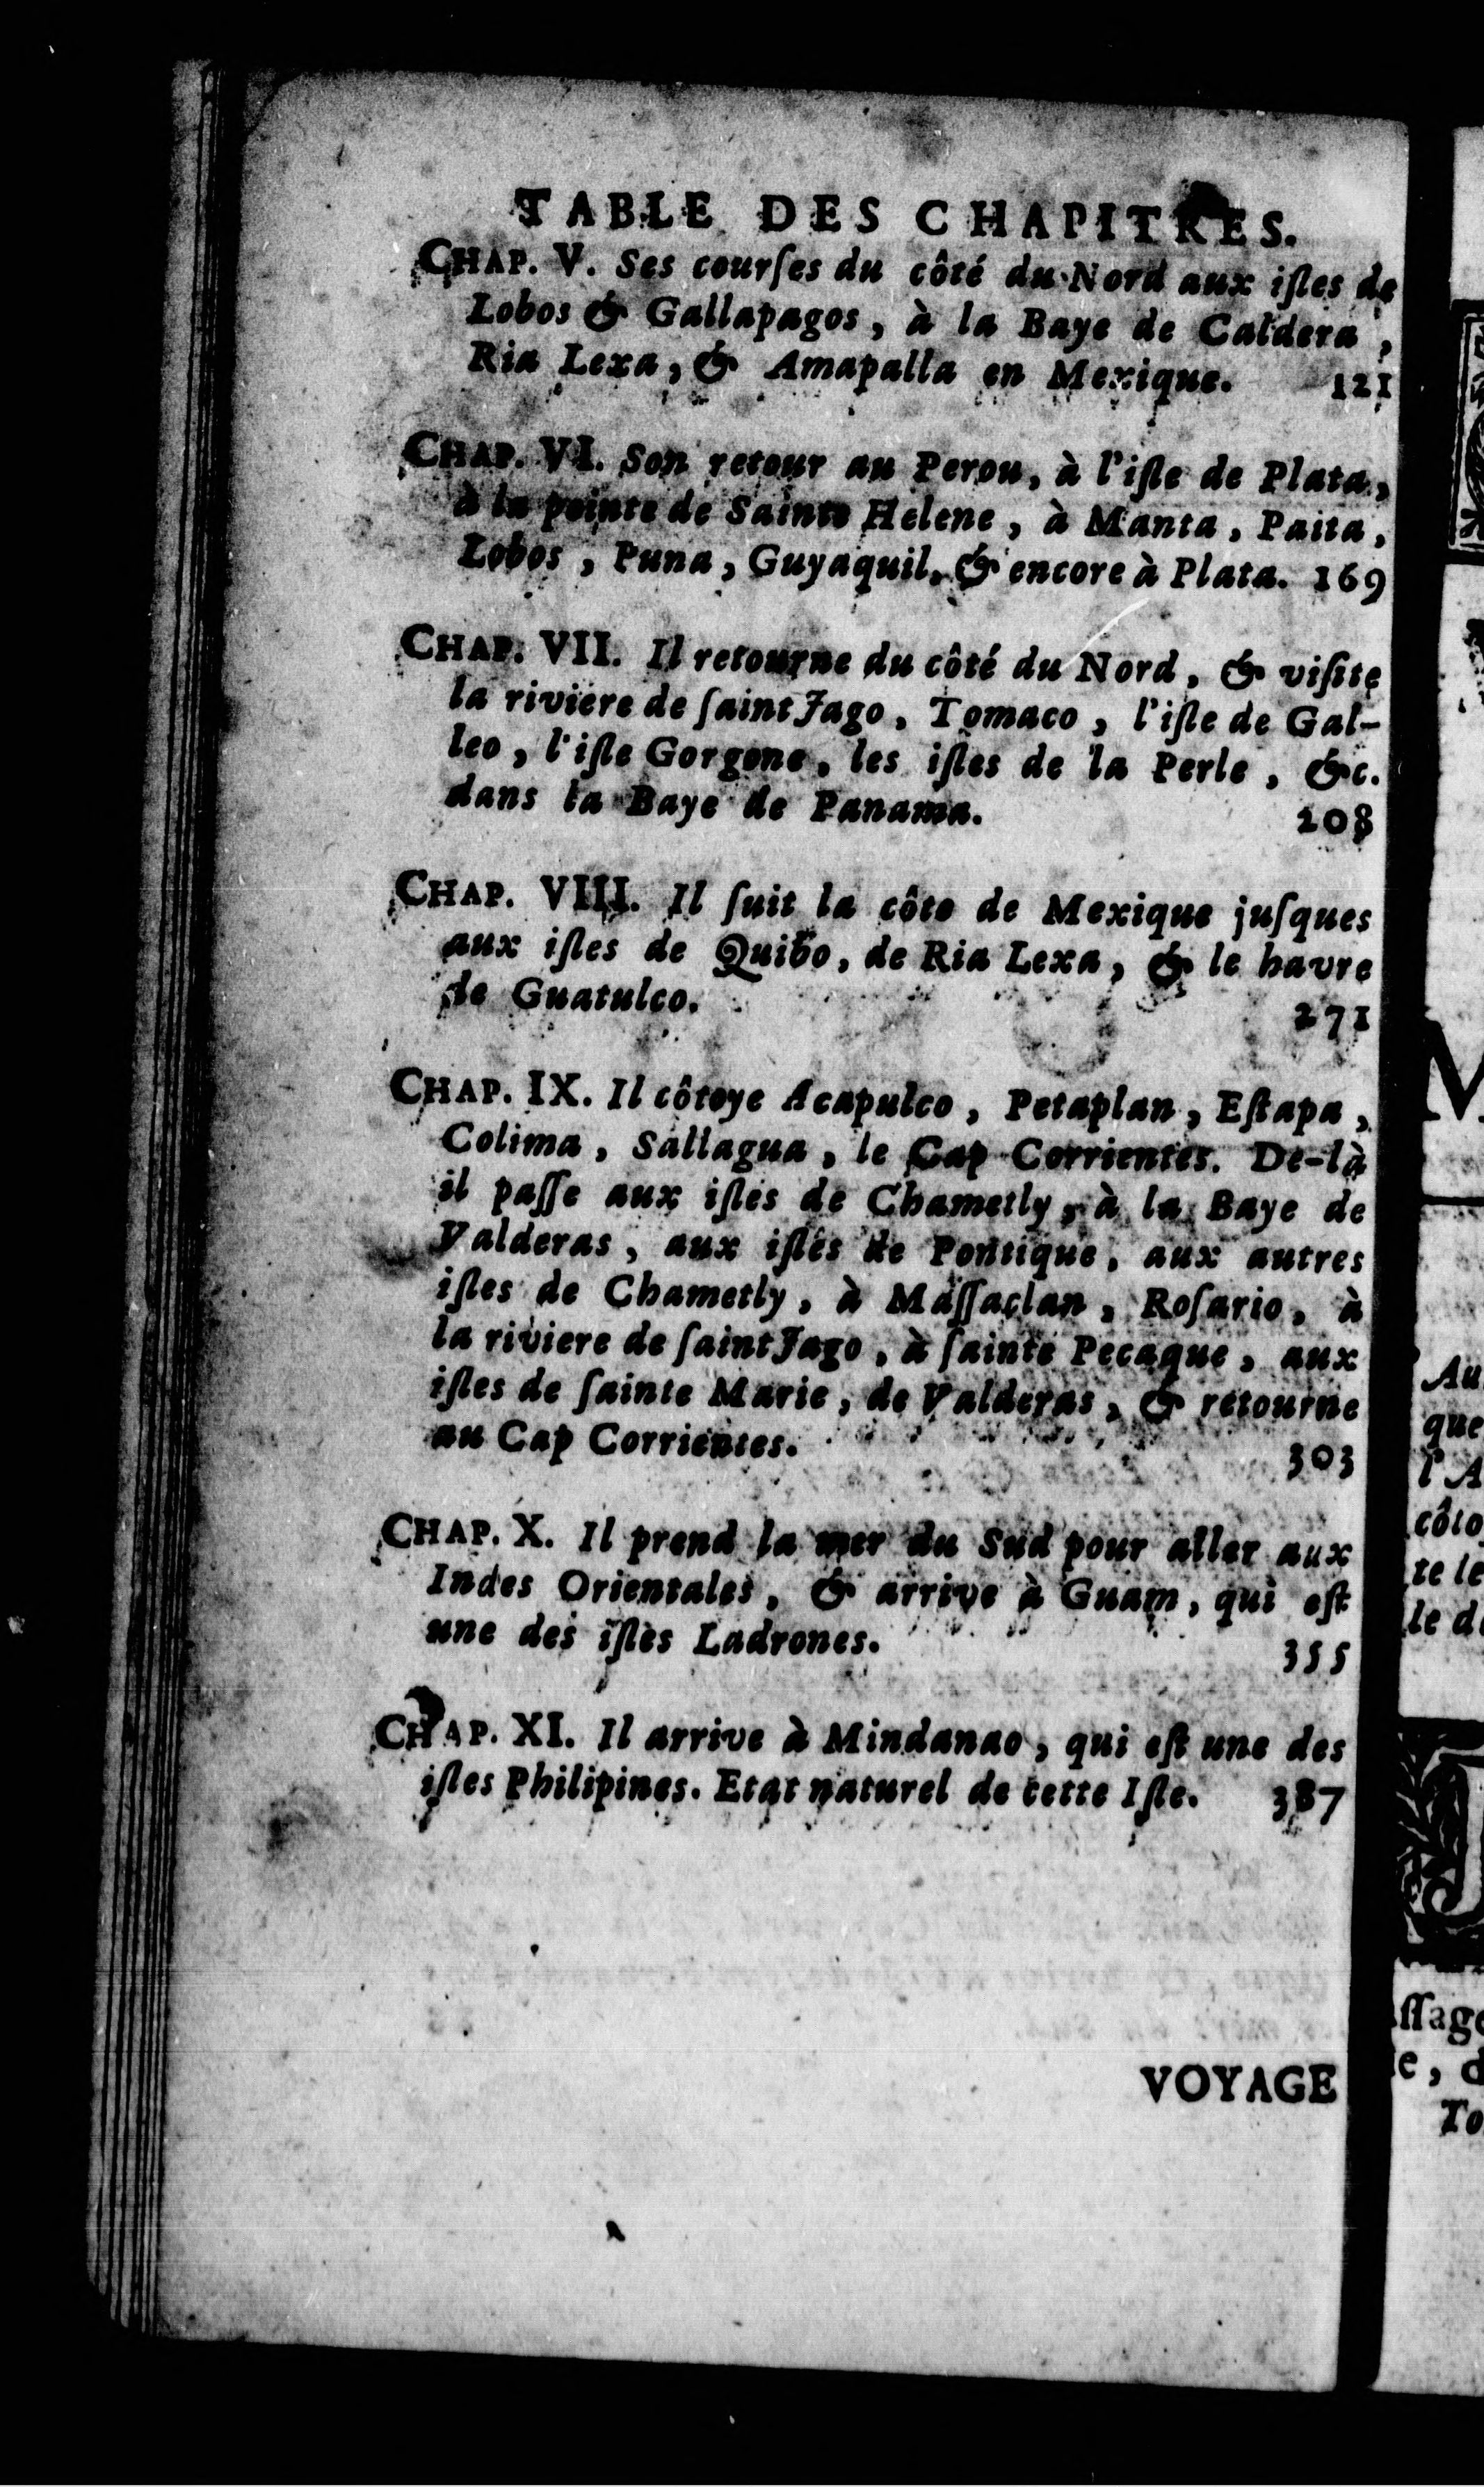 TABLE DES CHAPITRES.
CHAP. V. Ses courſes du côté du Nord aux iſles de
Lobos & Gallapagos, à la Baye de Caldera,
Ria Lexa, & Amapalla en Mexique. 121
CHAP. VI. Son retour au Perou, à l'iſle de Plata,
à la pointe de Sainte Helene, à Manta, Paita,
Lobos, Puna, Guyaquil, & encore à Plata. 169
CHAP. VII. Il retourne du côté du Nord, & viſite
la riviere de ſaint Jago, Tomaco, l'iſle de Gal-
leo, l'iſle Gorgone, les iſles de la Perle, &c.
dans la Baye de Panama. 208
CHAP. VIII. Il ſuit la côte de Mexique juſques
aux iſles de Quibo, de Ria Lexa, & le havre
de Guatulco. 271
CHAP. IX. Il côtoye Acapulco, Petaplan, Eſtapa,
Colima, Sallagua, le Cap Corrientes. De-là
il paſſe aux iſles de Chametly, à la Baye de
Valderas, aux iſles de Pontique, aux autres
iſles de Chametly, à Maſſaclan, Roſario, à
la riviere de ſaint Jago, à ſainte Pecaque, aux
iſles de ſainte Marie, de Valderas, & retourne
au Cap Corrientes. 303
CHAP. X. Il prend la mer du Sud pour aller aux
Indes Orientales, & arrive à Guam, qui eſt
une des iſles Ladrones. 355
CHAP. XI. Il arrive à Mindanao, qui eſt une des
iſles Philipines. Etat naturel de cette Iſle. 387
VOYAGE
M
Au
que
l'A
côto
te le
le d
ſſage
e, d
To